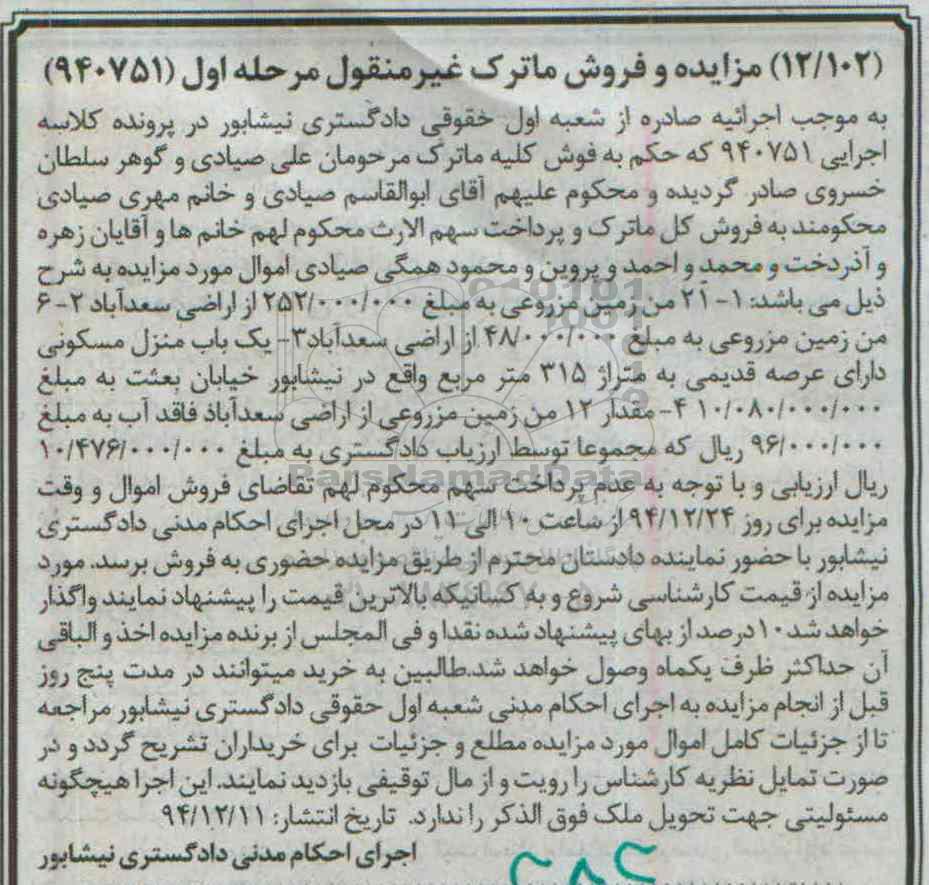 (۱۲/۱۰۲) مزایده و فروش ماترک غیرمنقول مرحله اول (۹۴۰۷۵۱)
به موجب اجرائیه صادره از شعبه اول خقوقی دادگستری نیشابور در پرونده کلاسه
اجرایی ۹۴۰۷۵۱ که حکم به فوش کلیه ماترک مرحومان علی صیادی و گوهر سلطان
خسروی صادر گردیده و محکوم علیهم آقای ابوالقاسم صیادی و خانم مهری صیادی
محکومند به فروش کل ماترک و پرداخت سهم الارث محکوم لهم خانم ها و آقایان زهره
و آذردخت و محمد و احمد و پروین و محمود همگی صیادی اموال مورد مزایده به شرح
ذیل می باشد: ۱- ۲۱ من زمین مزروعی به مبلغ ۲۵۲/۰۰۰/۰۰۰ از اراضی سعدآباد ۲- ۶
من زمین مزروعی به مبلغ ۴۸/۰۰۰/۰۰۰ از اراضی سعدآباد۳- یک باب منزل مسکونی
دارای عرصه قدیمی به متراژ ۳۱۵ متر مربع واقع در نیشابور خیابان بعثت به مبلغ
۱۰/۰۸۰/۰۰۰/۰۰۰ ۴- مقدار ۱۲ من زمین مزروعی از اراضی سعدآباذ فاقد آب به مبلغ
۹۶/۰۰۰/۰۰۰ ریال که مجموعا توسط ارزیاب دادگستری به مبلغ ۱۰/۴۷۶/۰۰۰/۰۰۰
ریال ارزیابی و با توجه به عدم پرداخت سهم محکوم لهم تقاضای فروش اموال و وقت
مزایده برای روز ۹۴/۱۲/۲۴ از ساعت ۱۰ الی ۱۱ در محل اجرای احکام مدنی دادگستری
نیشابور با حضور نماینده دادستان محترم از طریق مزایده حضوری به فروش برسد. مورد
مزایده از قیمت کارشناسی شروع و به کسانیکه بالاترین قیمت را پیشنهاد نمایند واگذار
خواهد شد ۱۰درصد از بهای پیشنهاد شده نقدا و فی المجلس از برنده مزایده اخذ و الباقی
آن حداکثر ظرف یکماه وصول خواهد شد.طالبین به خرید میتوانند در مدت پنج روز
قبل از انجام مزایده به اجرای احکام مدنی شعبه اول حقوقی دادگستری نیشابور مراجعه
تا از جزئیات کامل اموال مورد مزایده مطلع و جزئیات برای خریداران تشریح گردد و در
صورت تمایل نظریه کارشناس را رویت و از مال توقیفی بازدید نمایند. این اجرا هیچگونه
مسئولیتی جهت تحویل ملک فوق الذکر را ندارد. تاریخ انتشار: ۹۴/۱۲/۱۱
اجرای احکام مدنی دادگستری نیشابور
ParsNamadData